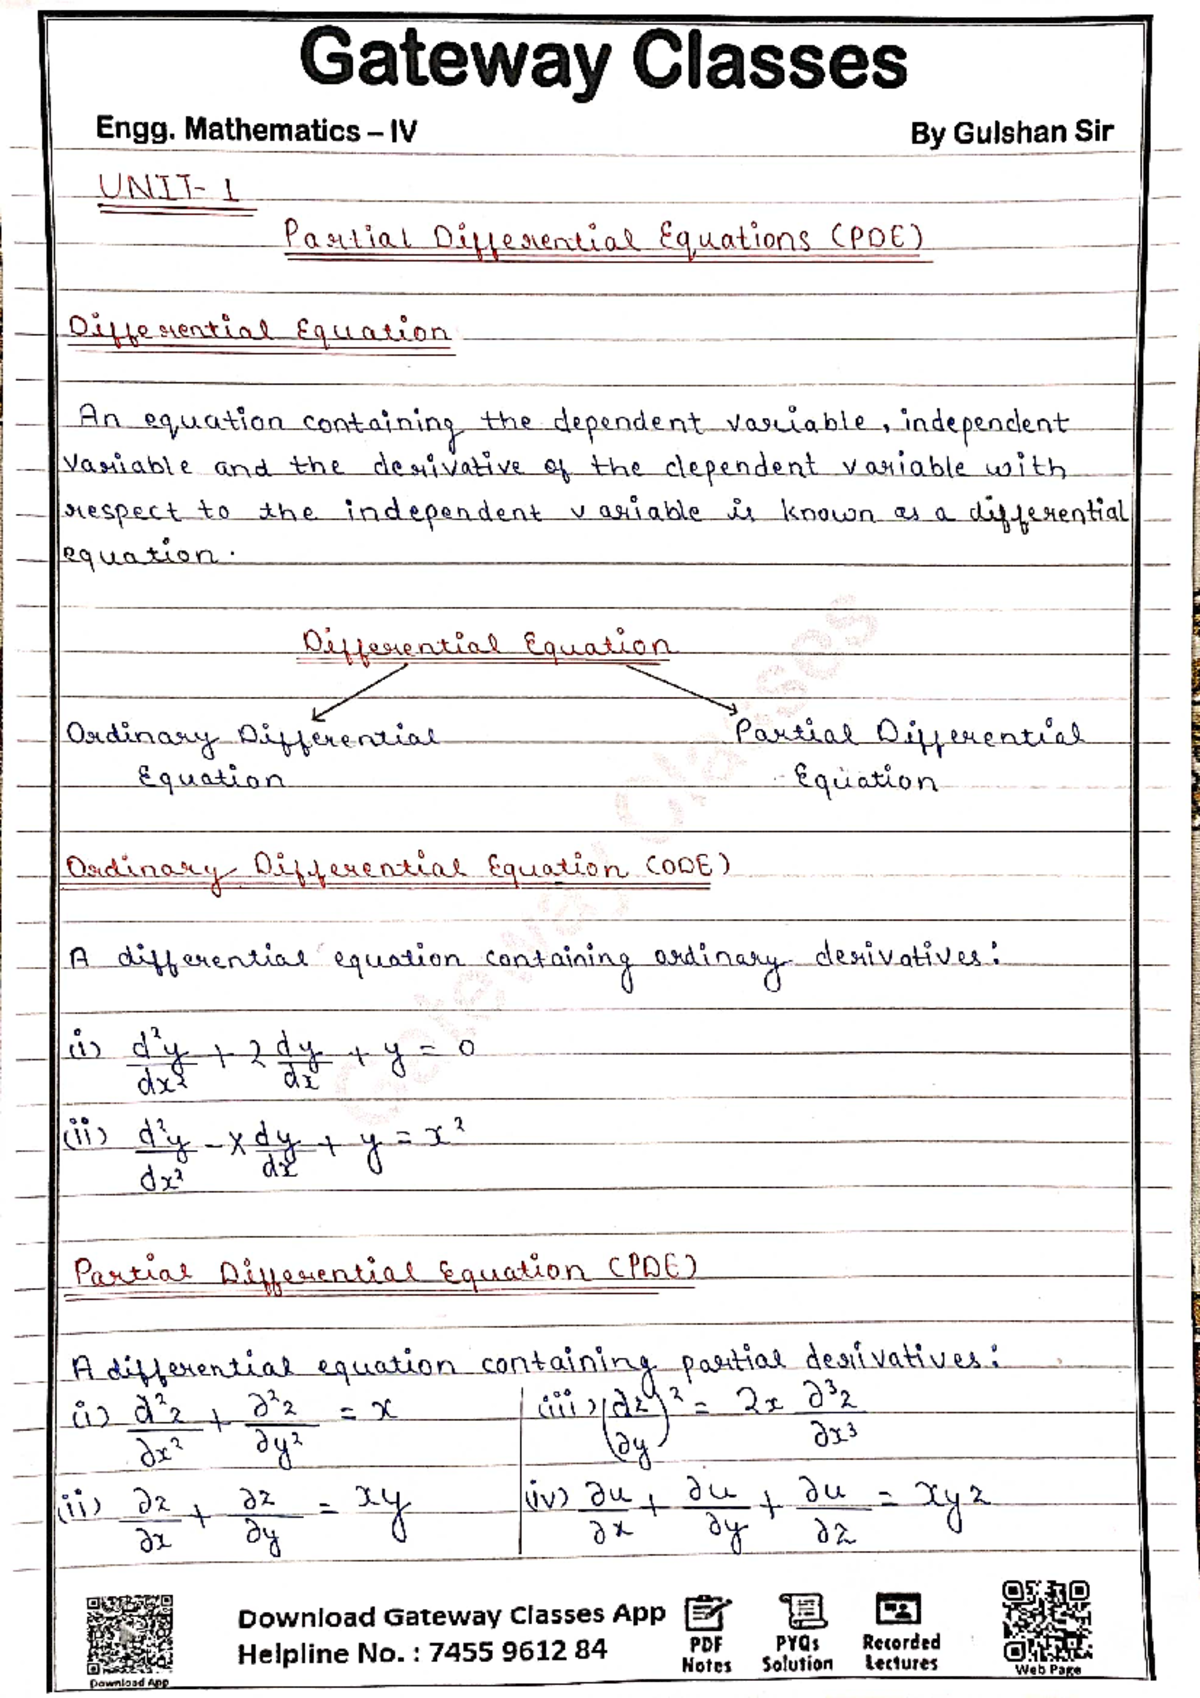 Gateway Classes
Engg. Mathematics – IV
By Gulshan Sir
UNIT- 1
Partial Differential Equations (PDE)
Differential Equation
An equation containing the dependent variable, independent
variable and the derivative of the dependent variable with
respect to the independent variable is known as a differential
equation.
Differential Equation
Ordinary Differential
Equation
Partial Differential
Equation
Ordinary Differential Equation (ODE)
A differential equation containing ordinary derivatives:
(i) d²y/dx² + 2 dy/dx + y = 0
(ii) d²y/dx² - x dy/dx + y = x²
Partial Differential Equation (PDE)
A differential equation containing partial derivatives:
(i) ∂²z/∂x² + ∂²z/∂y² = x
(ii) ∂z/∂x + ∂z/∂y = xy
(iii) (∂z/∂y)² = 2x ∂³z/∂x³
(iv) ∂u/∂x + ∂u/∂y + ∂u/∂z = xyz
Gateway Classes
Download App
Download Gateway Classes App
Helpline No. : 7455 9612 84
PDF
Notes
PYQs
Solution
Recorded
Lectures
Web Page